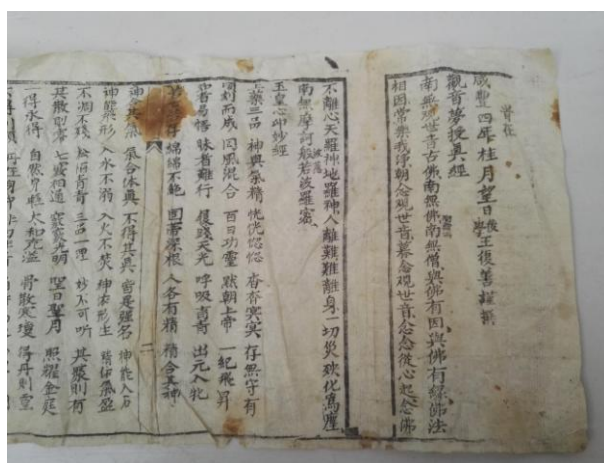 咸豐四年桂月望日後學王復善謹撰
觀音夢授真經
南無觀世音古佛南無佛南無僧與佛有因與佛有緣佛法
相因常樂我淨朝念觀世音暮念觀世音念念從心起念佛
不離心天羅神地羅神人離難難離身一切災殃化為塵
南無摩訶般若波羅蜜
玉皇心印妙經
上藥三品 神與炁精 恍恍惚惚 杳杳冥冥 存無守有
頃刻而成 囬風混合 百日功靈 默朝上帝 一紀飛昇
者易悟 昧者難行 履踐天光 呼吸育清 出元入牝
若存 綿綿不絕 固蒂深根 人各有精 精合其神
神合其炁 氣合体真 不得其真 皆是強名 神能入石
神能飛形 入水不溺 入火不焚 神依形生 精依氣盈
不凋不殘 松柏青青 三品一理 妙不可听 其聚則有
其散則零 七竅相通 竅竅光明 聖日聖月 照耀金庭
一得永得 自然身輕 太和充溢 骨散寒瓊 得丹則靈
二